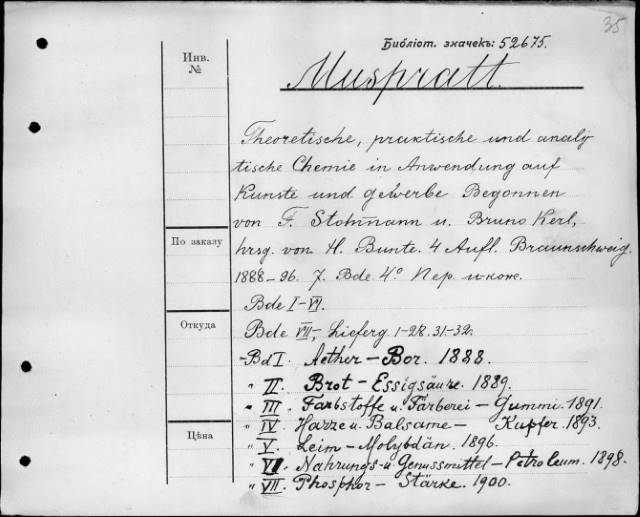 35
Библіот. значекъ: 52675.
Инв.
№
Muspratt.
Theoretische, praktische und analy
tische Chemie in Anwendung auf
Kunste und gewerbe Begonnen
von F. Stohmann u. Bruno Kerl,
По заказу
hrsg. von H. Bunte. 4 Aufl. Braunschweig.
1888-96. 7. Bde 4° Пер. и кож.
Bde I-VI.
Откуда
Bde VII, Lieferg. 1-28. 31-32.
Bd I. Aether - Bor. 1888.
" II. Brot - Essigsäure. 1889.
" III. Farbstoffe u. Färberei - Gummi. 1891.
" IV. Harze u. Balsame - Kupfer. 1893.
Цѣна
" V. Leim - Molybdän. 1896.
" VI. Nahrungs- u. Genussmittel - Petroleum. 1898.
" VII. Phosphor - Stärke. 1900.